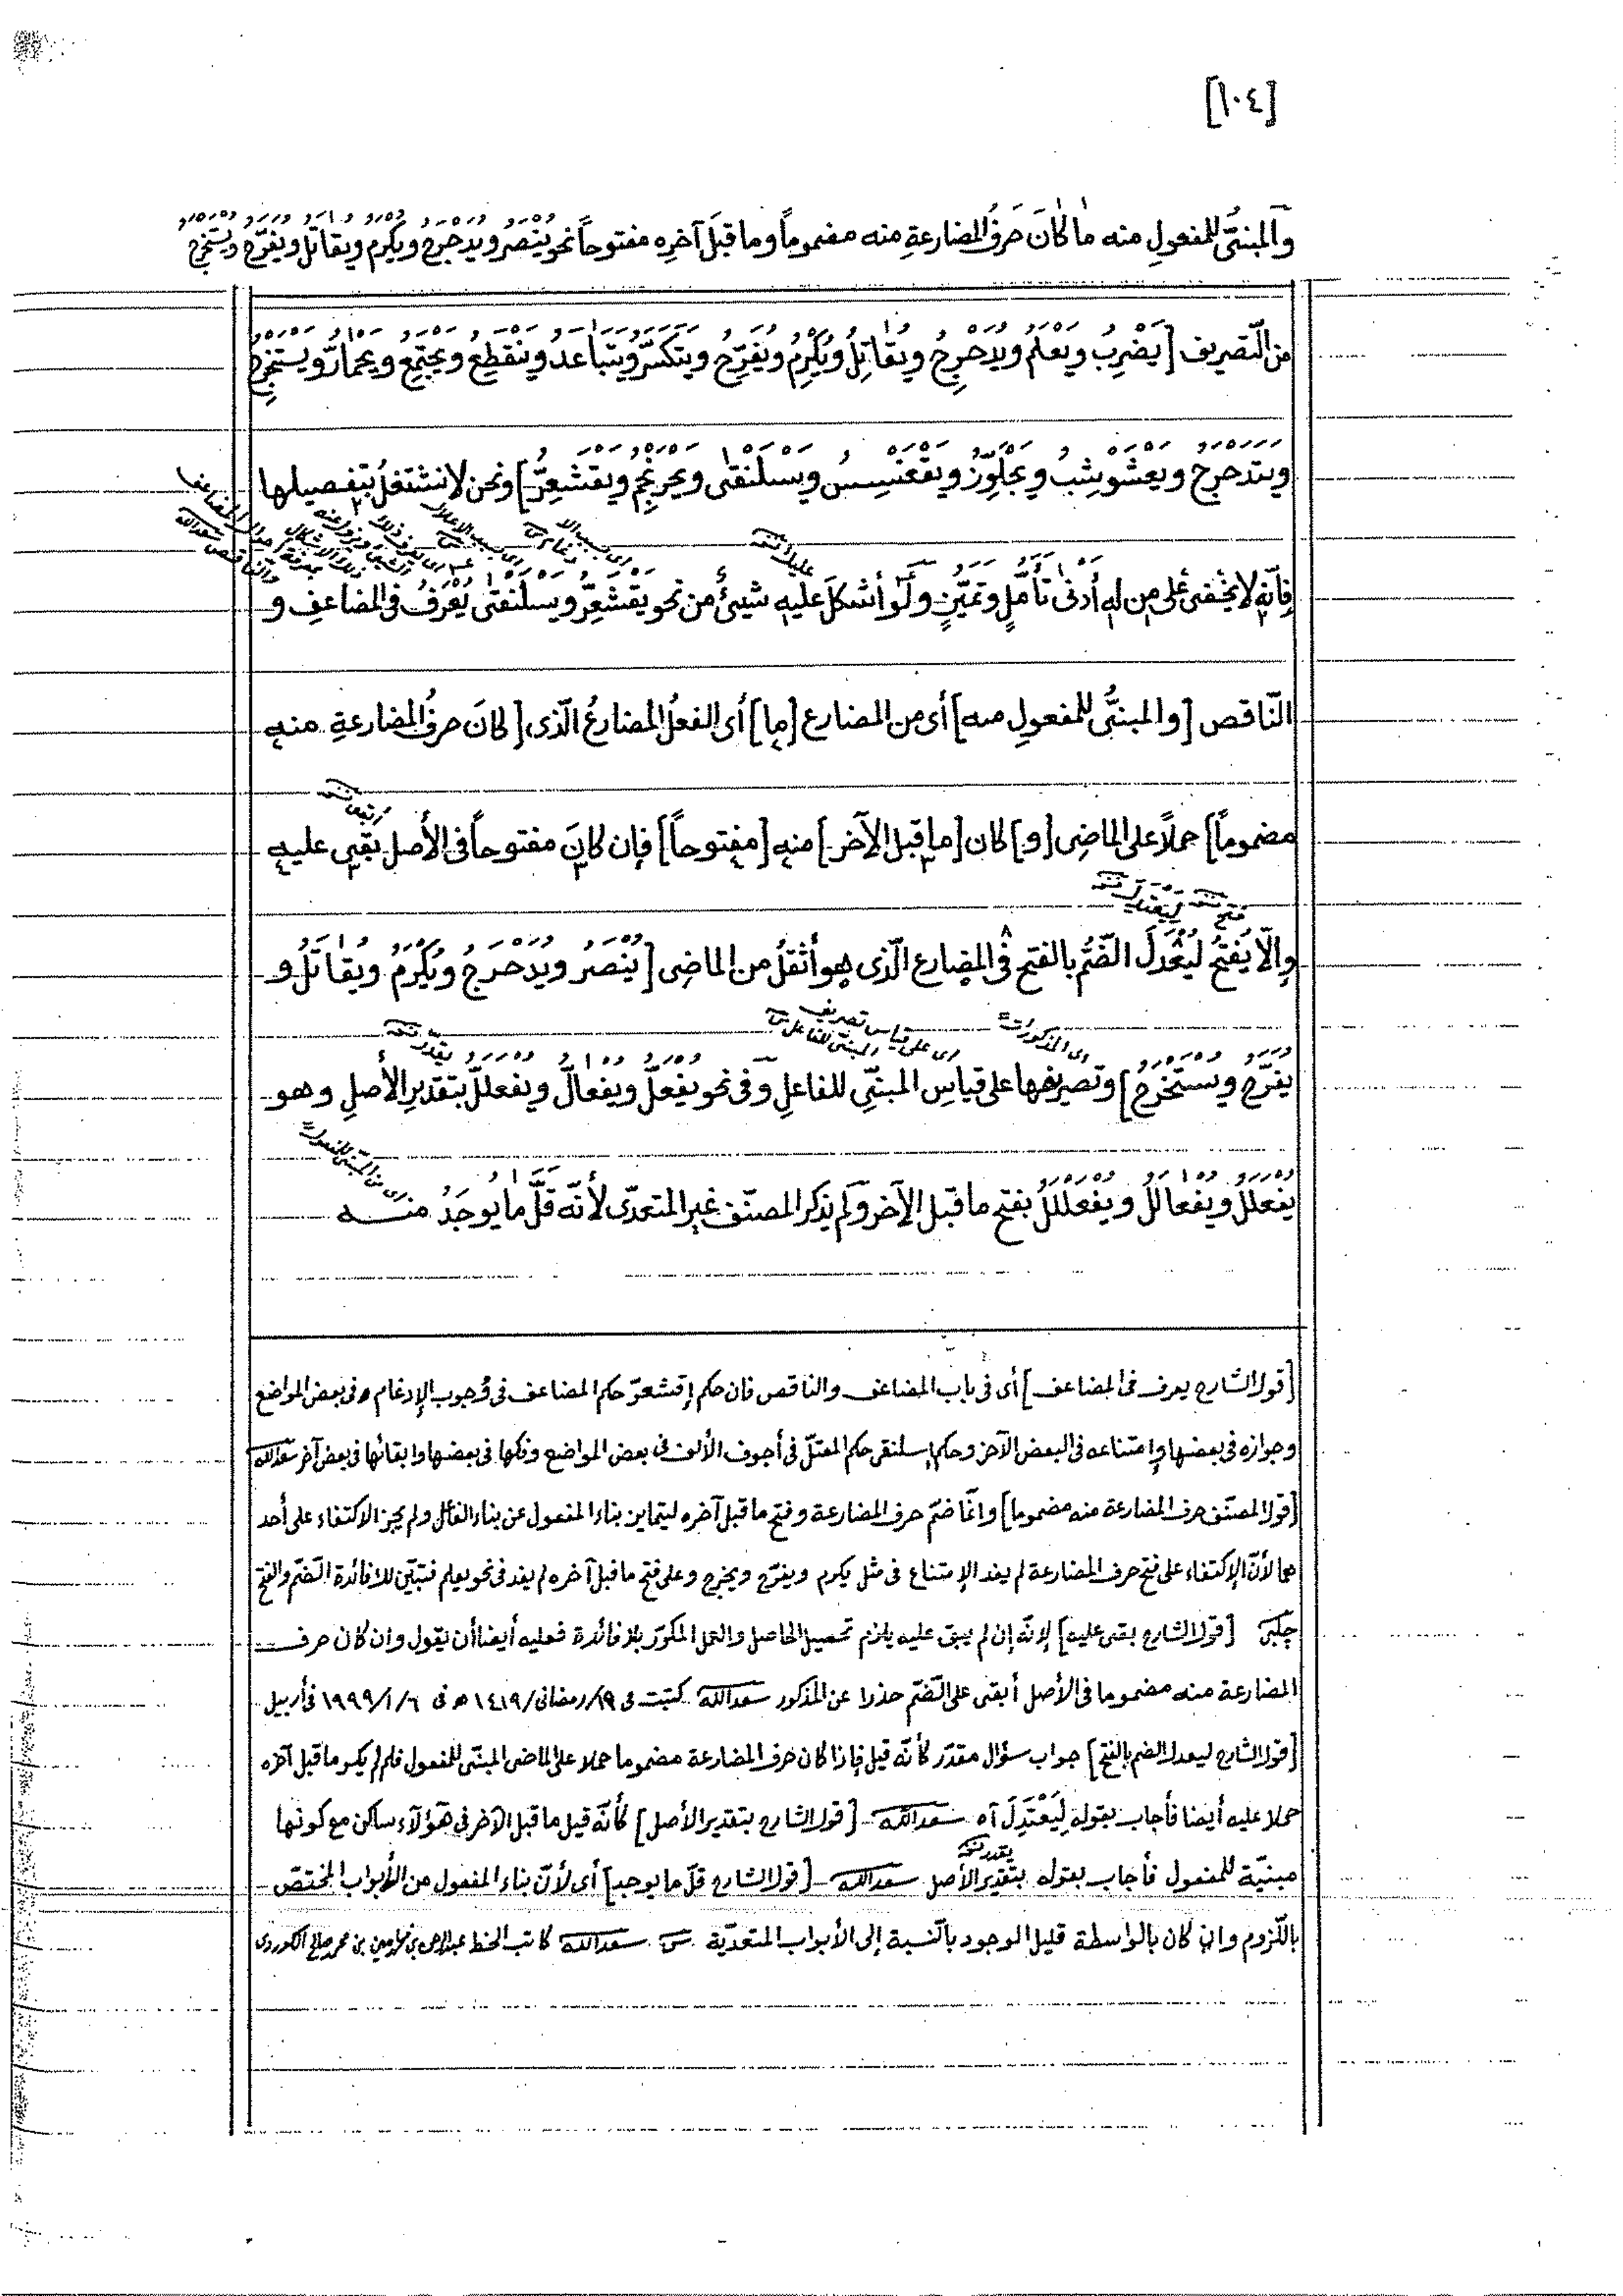 [١٠٤]
والمبنىّ للمفعولِ منه ما كانَ حَرفُ المضارعةِ منه مضموماً وما قبلَ آخرِه مفتوحاً نحو يُنْصَرُ ويُدَحْرَجُ ويُكْرَمُ ويُقاتَلُ ويُفَرَّحُ ويُسْتَخْرَجُ
من التّصريف [يَضْرِبُ ويَعْلَمُ ويُدَحْرِجُ ويُقَاتِلُ ويُكْرِمُ ويُفَرِّحُ ويَتَكَسَّرُ ويَتَبَاعَدُ ويَنْقَطِعُ ويَجْتَمِعُ ويَحْمَارُّ ويَسْتَخْرِجُ
ويَتَدَحْرَجُ ويَعْشَوْشِبُ ويَجْلَوِّذُ ويَقْعَنْسِسُ ويَسْلَنْقى ويَحْرَنْجِمُ ويَقْشَعِرُّ] ونحن لا نشتغلُ بتفصيلها
فإنّه لا يخفى على من له أدنى تأمّلٍ وتميّزٍ ولو أشكلَ عليه شيئٌ من نحو يَقْشَعِرُّ ويَسْلَنْقى يُعْرَفُ فى المضاعفِ و
النّاقص [والمبنىُّ للمفعولِ منه] أى من المضارع [ما] أى الفعلُ المضارعُ الّذى [كانَ حرفُ المضارعةِ منه
مضموماً] حملاً على الماضِى [و] كان [ما قبل الآخر] منه [مفتوحاً] فإن كانَ مفتوحاً فى الأصل بقى عليه
وإلّا يُفتحُ ليُعْدَلَ الضّمُّ بالفتح فى المضارع الّذى هو أثقلُ من الماضِى [يُنْصَرُ ويُدَحْرَجُ ويُكْرَمُ ويُقاتَلُ و
يُفَرَّحُ ويُسْتَخْرَجُ] وتصريفها على قياسِ المبنىّ للفاعلِ وفى نحو يُفْعَلُّ ويُفْعالُّ ويُفْعَلَلُّ بتقديرِ الأصلِ وهو
يُفْعَلَلُ ويُفْعالَلُ ويُفْعَلْلَلُ بفتح ما قبل الآخر ولم يذكر المصنّف غير المتعدّى لأنّه قَلَّ ما يُوجَدُ منه
[قول الشارح يعرف فى المضاعف] أى فى باب المضاعف والناقص فان حكم إقشعرّ حكم المضاعف فى وُجوب الإدغام فى بعض المواضع
وجوازه فى بعضها وإمتناعه فى البعض الآخر وحكم إسلنقى حكم المعتلّ فى أجوف الألف فى بعض المواضع وفكها فى بعضها وابقائها فى بعض آخر سعدالله
[قول المصنّف حرف المضارعة منه مضموما] وانّما ضمّ حرف المضارعة وفتح ما قبل آخره ليتمايز بناء المفعول عن بناء الفاعل ولم يجز الاكتفاء على أحد
هما لأنّ الإكتفاء على فتح حرف المضارعة لم يفد الإمتناع فى مثل يكرم ويفرّح ويخرج وعلى فتح ما قبل آخره لم يفد فى نحو يعلم فتبيّن للا فائدة الضّم والفتح
چلبى [قول الشارح بقى عليه] لإنّه إن لم يبق عليه يلزم تحصيل الحاصل والعمل المكرّر بلا فائدة فعليه أيضا أن يقول وان كان حرف
المضارعة منه مضموما فى الأصل أبقى على الضّم حذرا عن المذكور سعدالله كتبت فى ١٩/رمضان/١٤١٩ ه فى ١٩٩٩/١/٦ فى أربيل
[قول الشارح ليعدل الضم بالفتح] جواب سؤال مقدّر كأنّه قيل فإذا كان حرف المضارعة مضموما حملا على الماضى المبنىّ للمفعول فلم لم يكسر ما قبل آخره
حملا عليه أيضا فأجاب بقوله لِيَعْتَدِلَ آه سعدالله [قول الشارح بتقدير الأصل] كأنّه قيل ما قبل الآخر فى هؤلآء ساكن مع كونها
مبنيّة للمفعول فأجاب بقوله بتقدير الأصل سعدالله [قول الشارح قلّ ما يوجد] أى لأنّ بناء المفعول من الأبواب المختصّ
باللّزوم وان كان بالواسطة قليل الوجود بالنّسبة إلى الأبواب المتعدّية سعدالله كاتب الخط